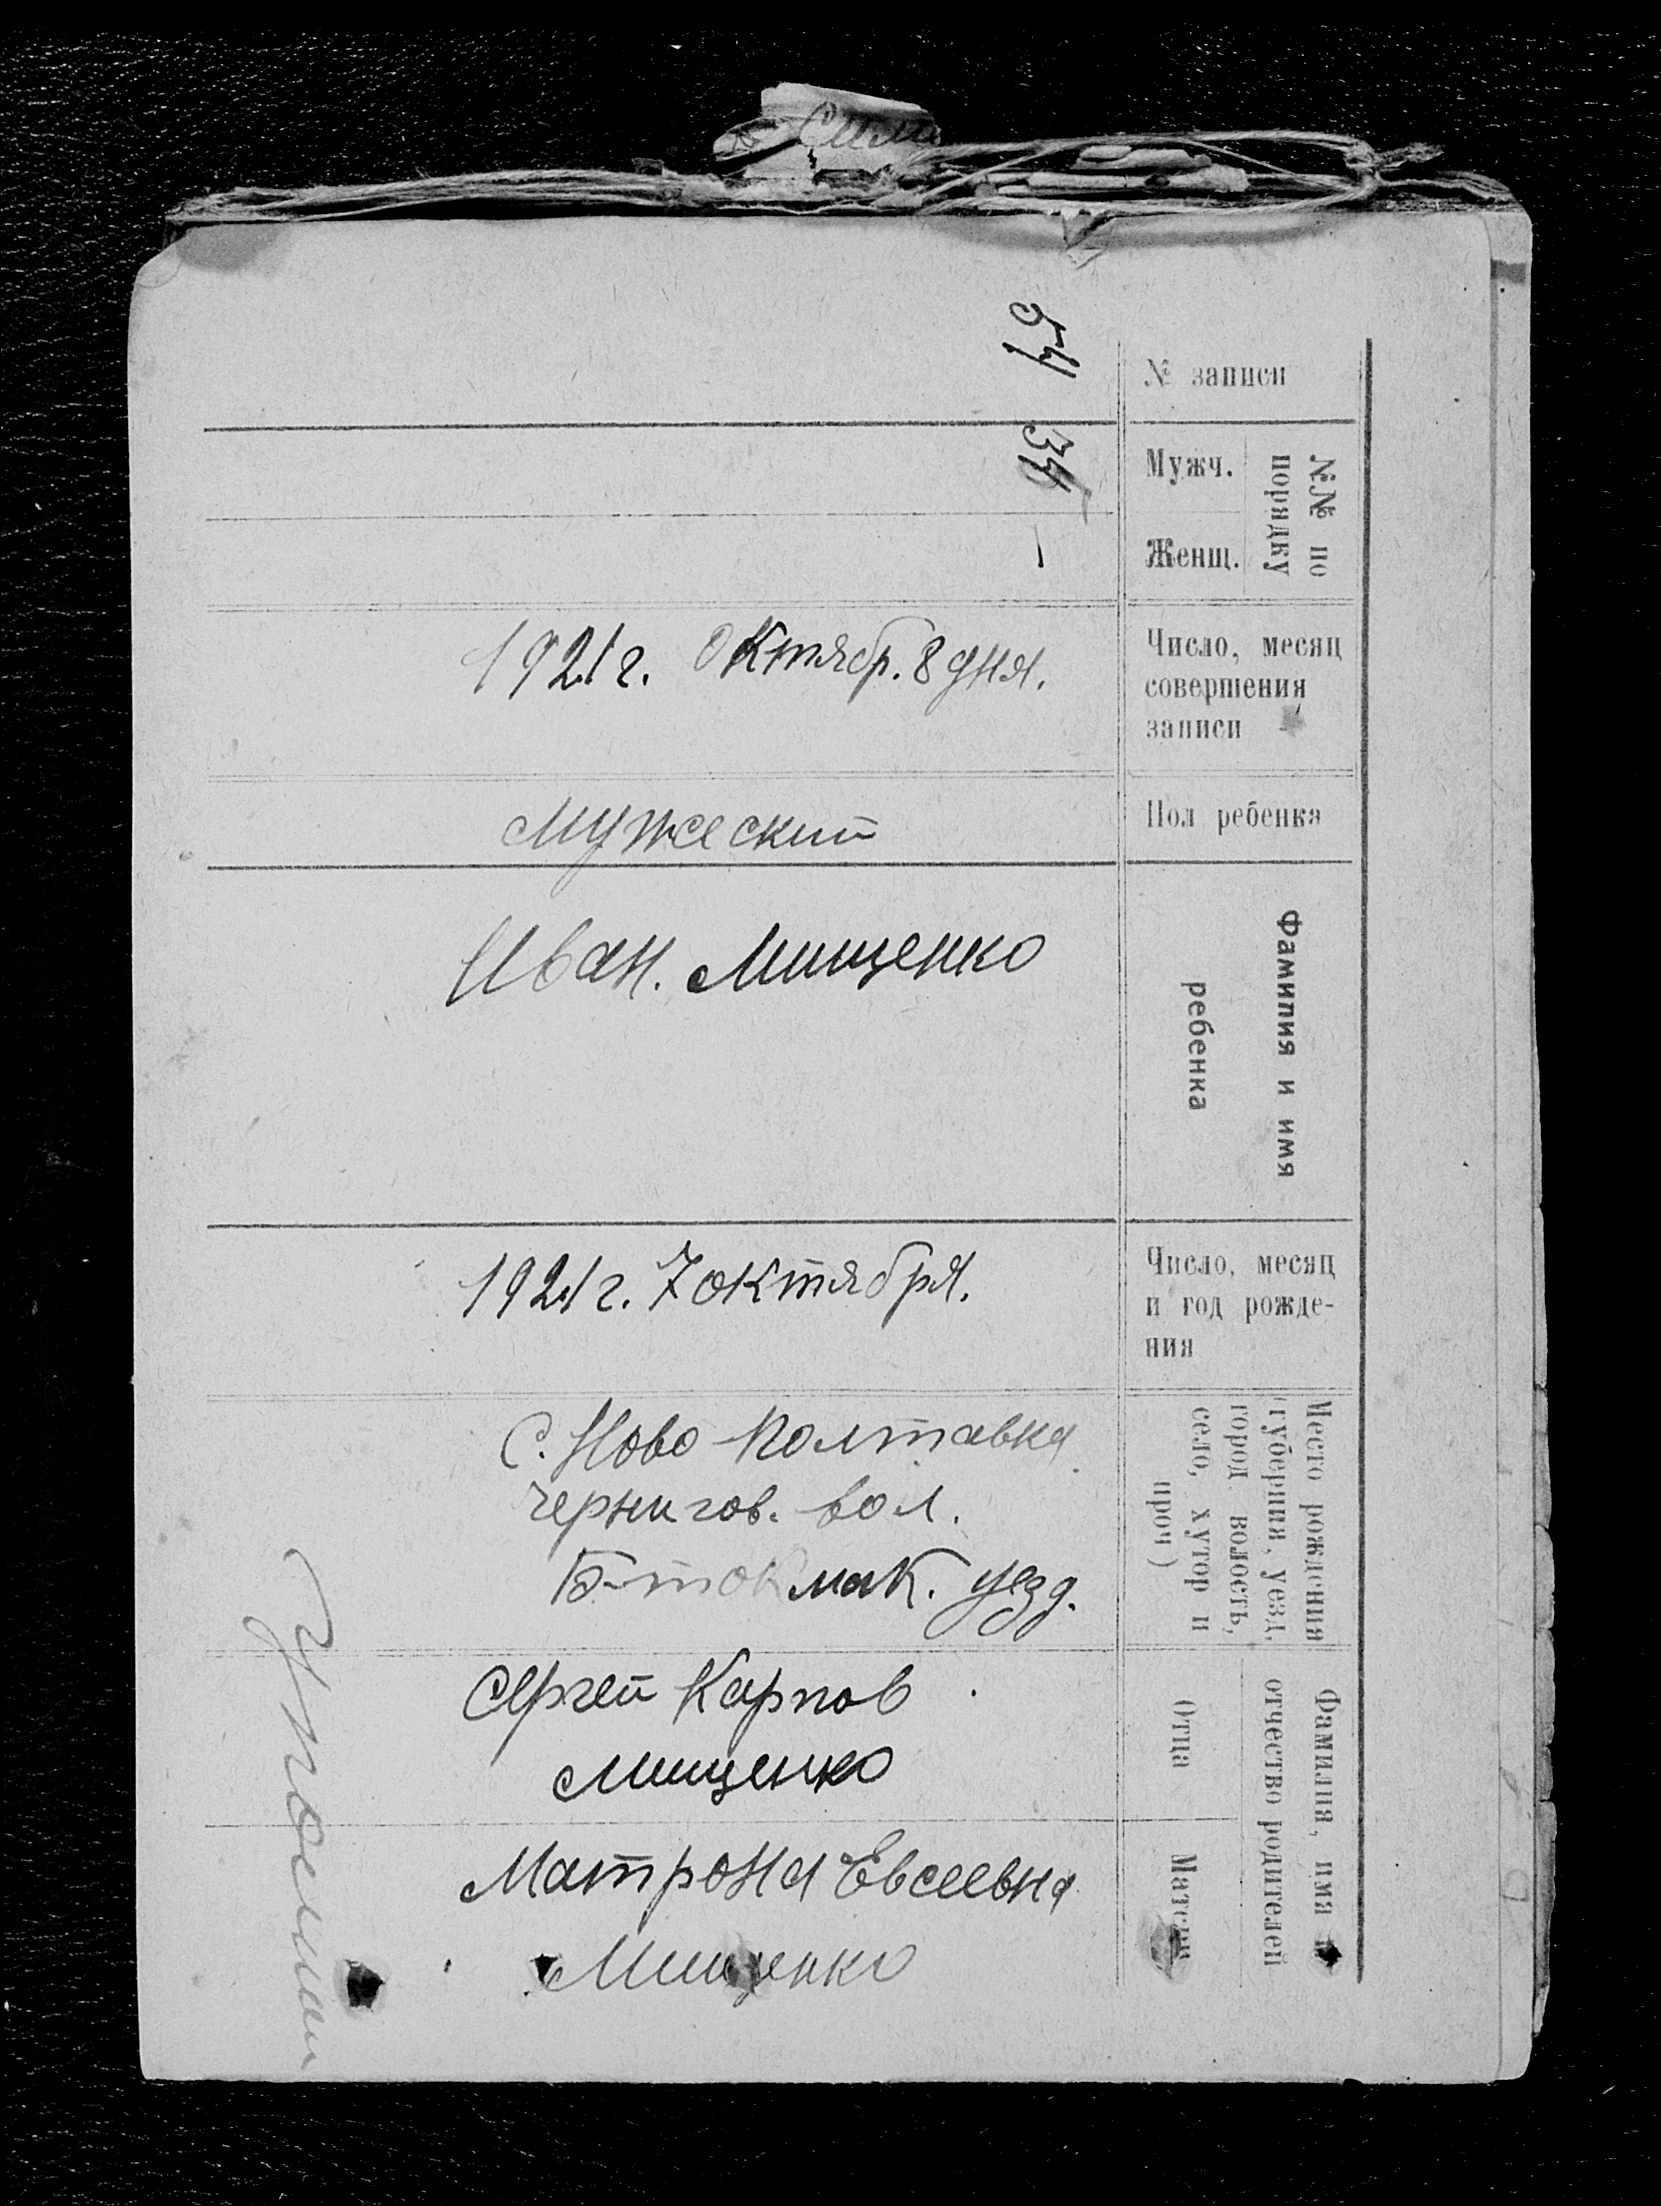 № записи
54
№№ по
порядку
Мужч.
34
Женщ.
—
Число, месяц
совершения
записи
1921 г. Октябр. 8 дня.
Пол ребенка
Мужеский
Фамилия и имя
ребенка
Иван. Мищенко
Число, месяц
и год рожде-
ния
1921 г. 7 октября.
Место рождения
(губерния, уезд,
город, волость,
село, хутор и
проч)
С. Ново-Полтавка
Чернигов. вол.
Б-токмак. уезд.
Фамилия, имя и
отчество родителей
Отца
Сергей Карпов
Мищенко
Матери
Матрона Евсеевна
Мищенко